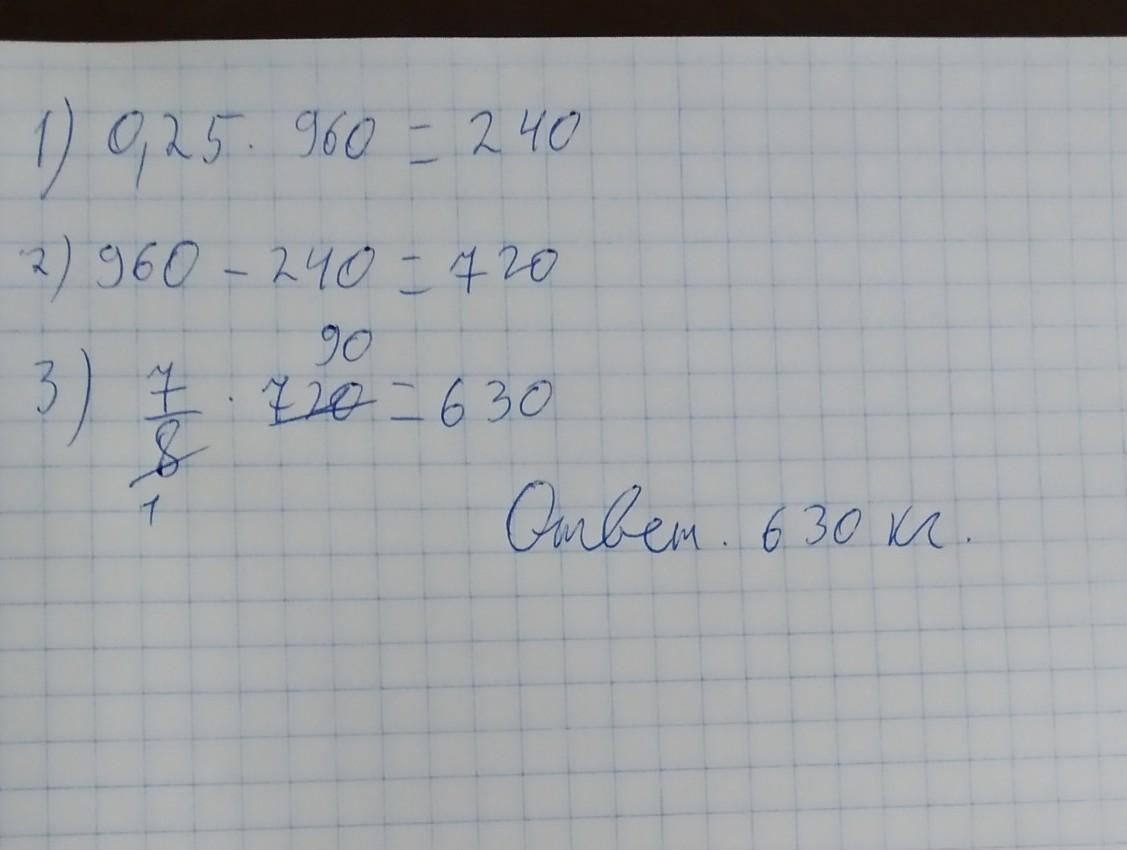 1) 0,25 · 960 = 240
2) 960 - 240 = 720
90
3) 7/8 · 720 = 630
1
Ответ. 630 кг.